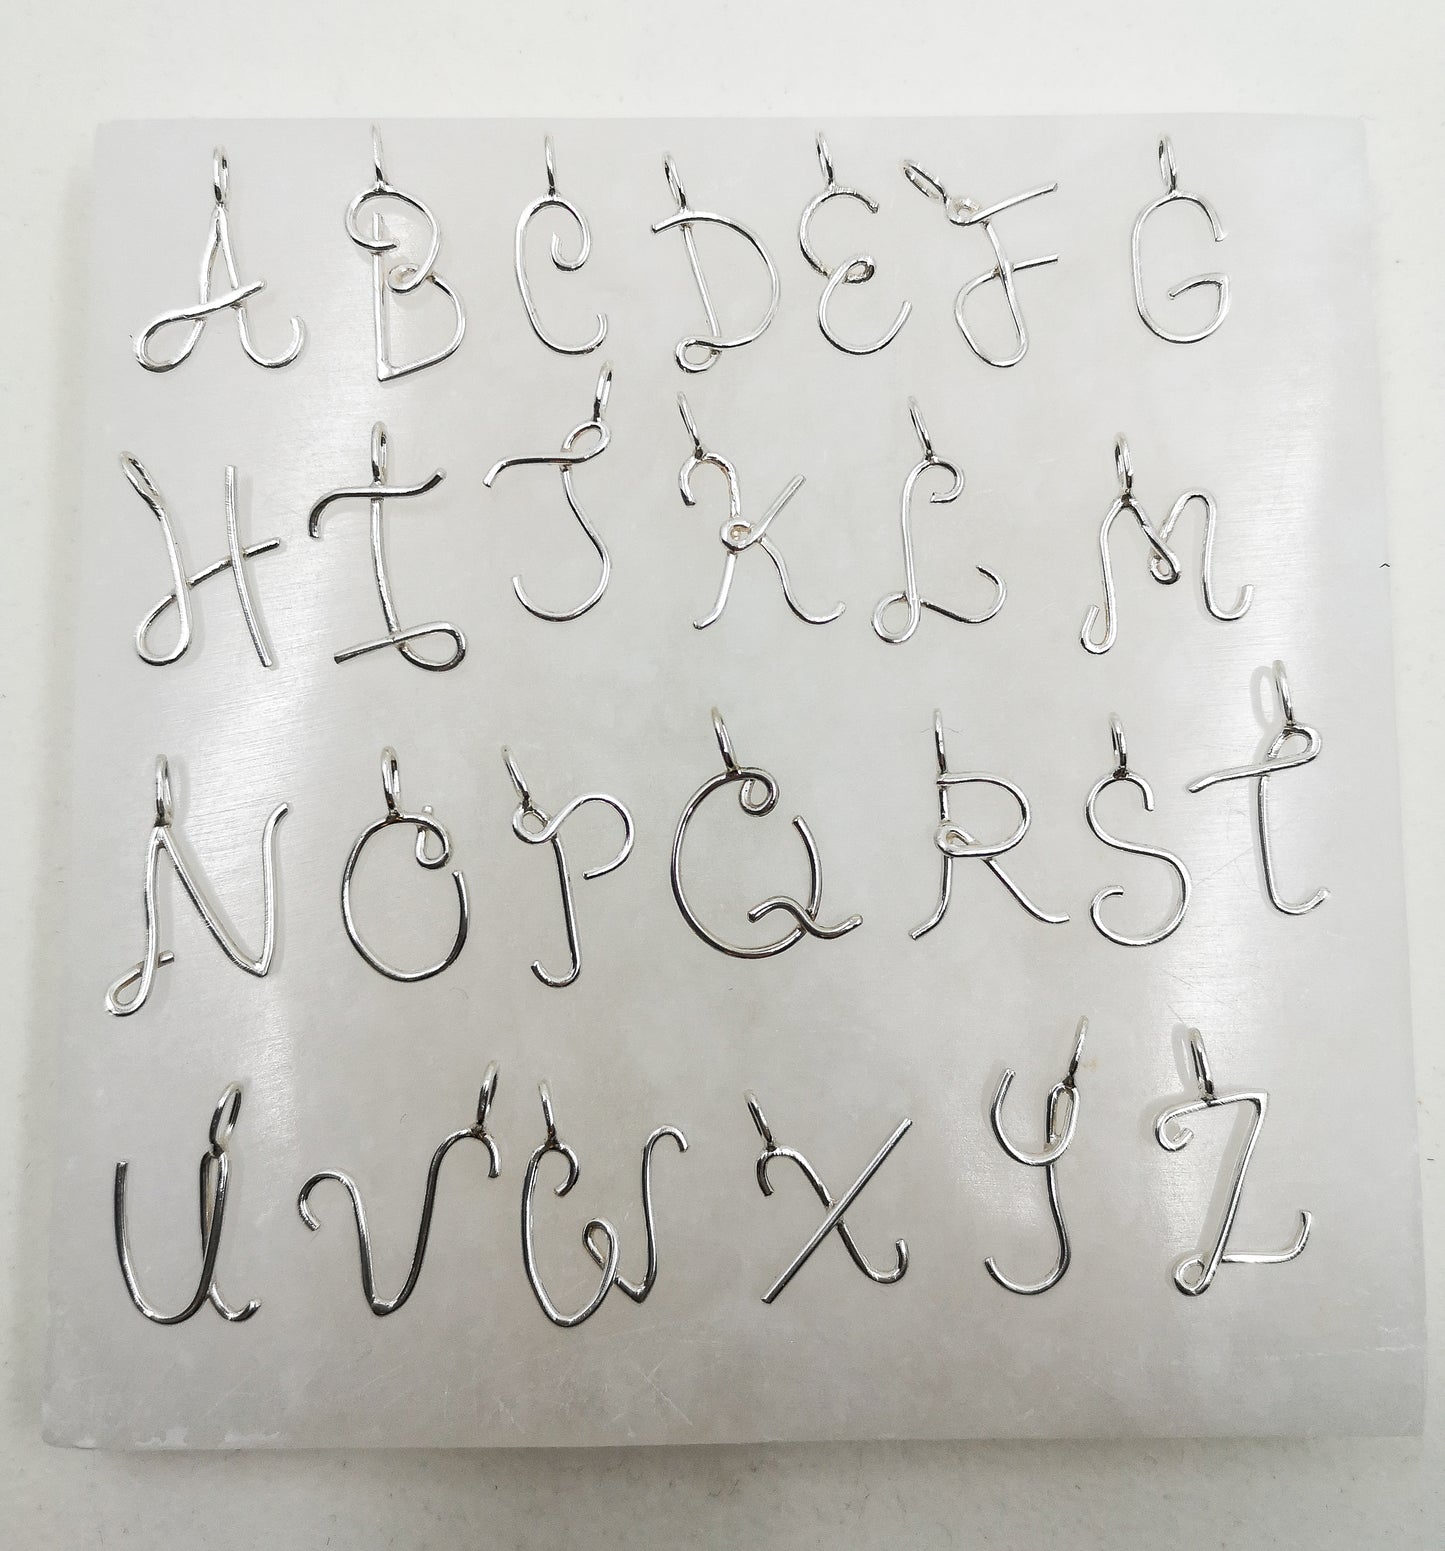 A B C D E F G
H I J K L M
N O P Q R S t
U V W X Y Z